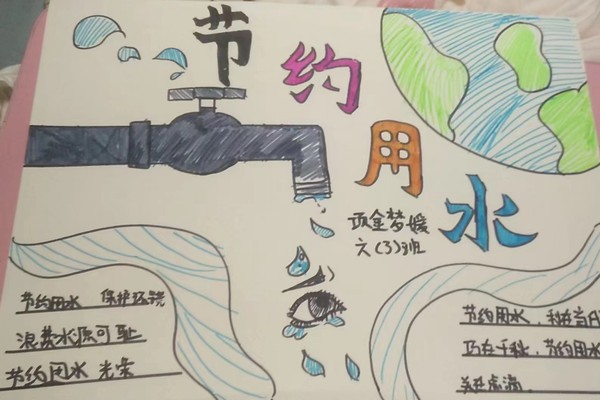 节约用水
项金梦媛
六(3)班
节约用水 保护环境
浪费水源可耻
节约用水 光荣
节约用水,利在当代
乃在千秋,节约用水
关进点滴